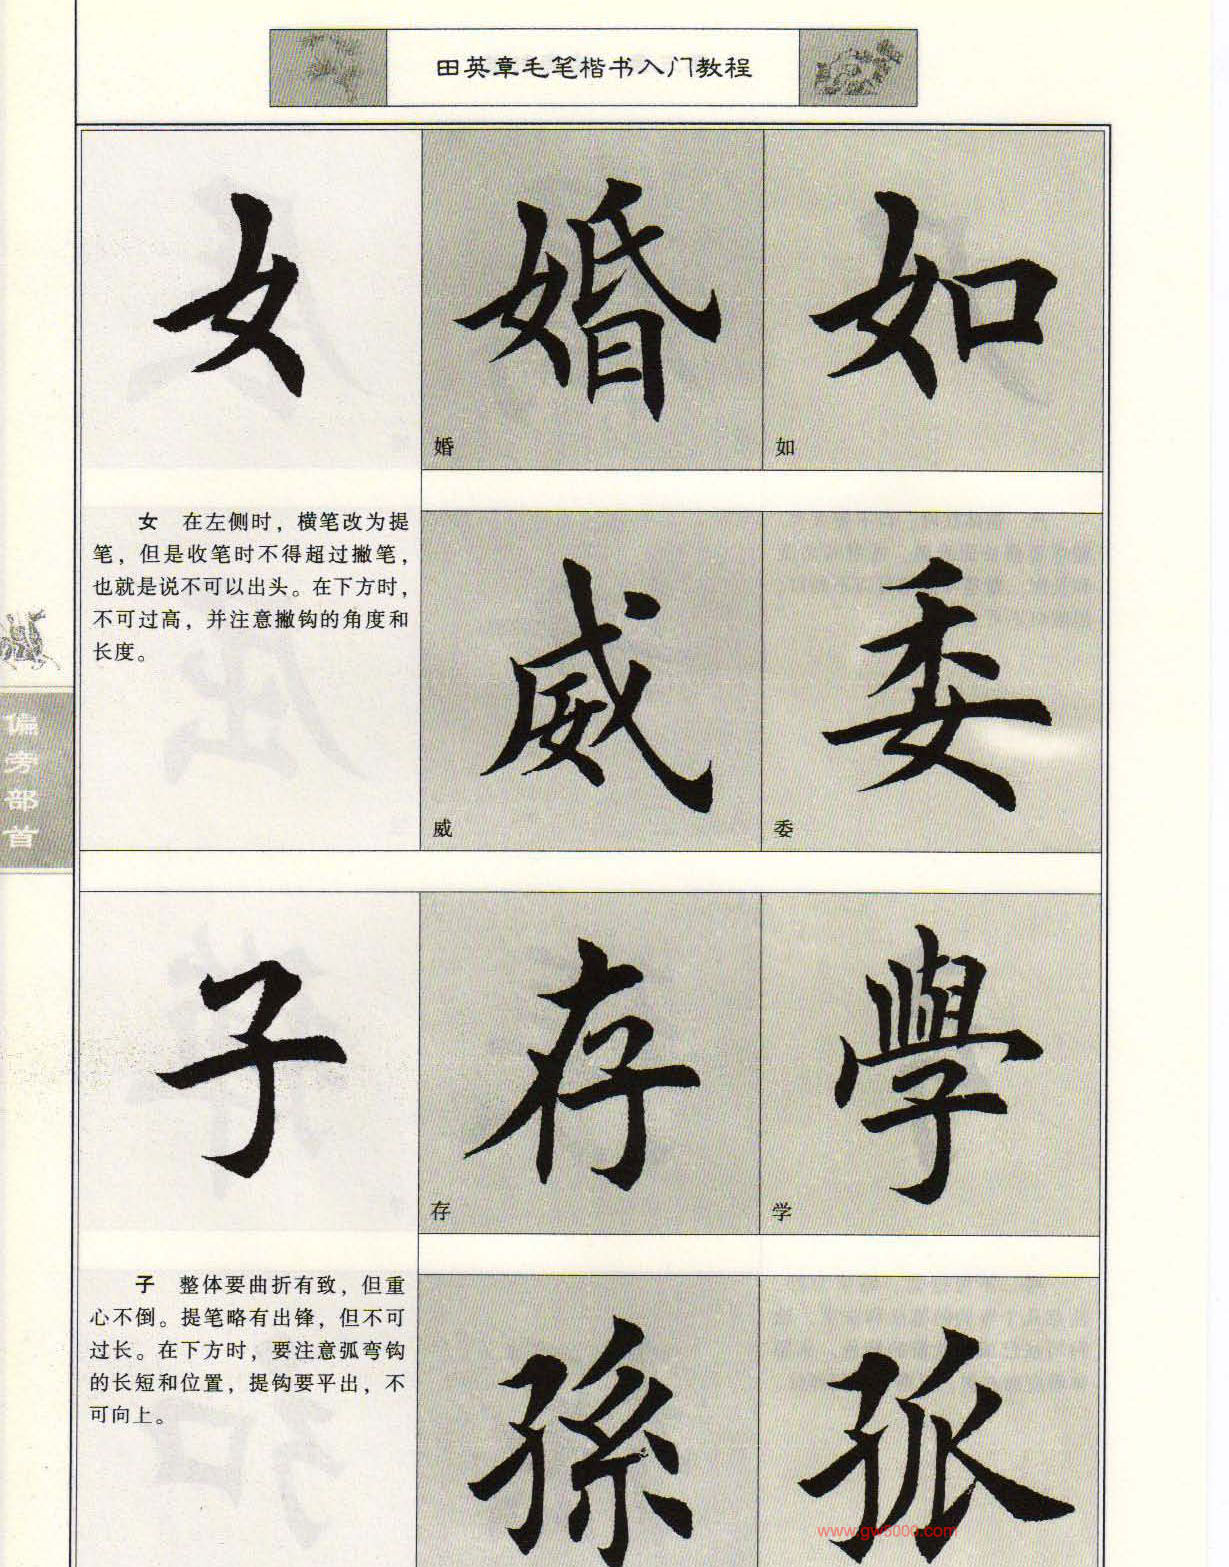 田英章毛笔楷书入门教程
女
婚
如
婚
如
女 在左侧时，横笔改为提
笔，但是收笔时不得超过撇笔，
也就是说不可以出头。在下方时，
不可过高，并注意撇钩的角度和
长度。
威
委
威
委
偏旁部首
子
存
學
存
学
子 整体要曲折有致，但重
心不倒。提笔略有出锋，但不可
过长。在下方时，要注意弧弯钩
的长短和位置，提钩要平出，不
可向上。
孫
孤
www.gw5000.com